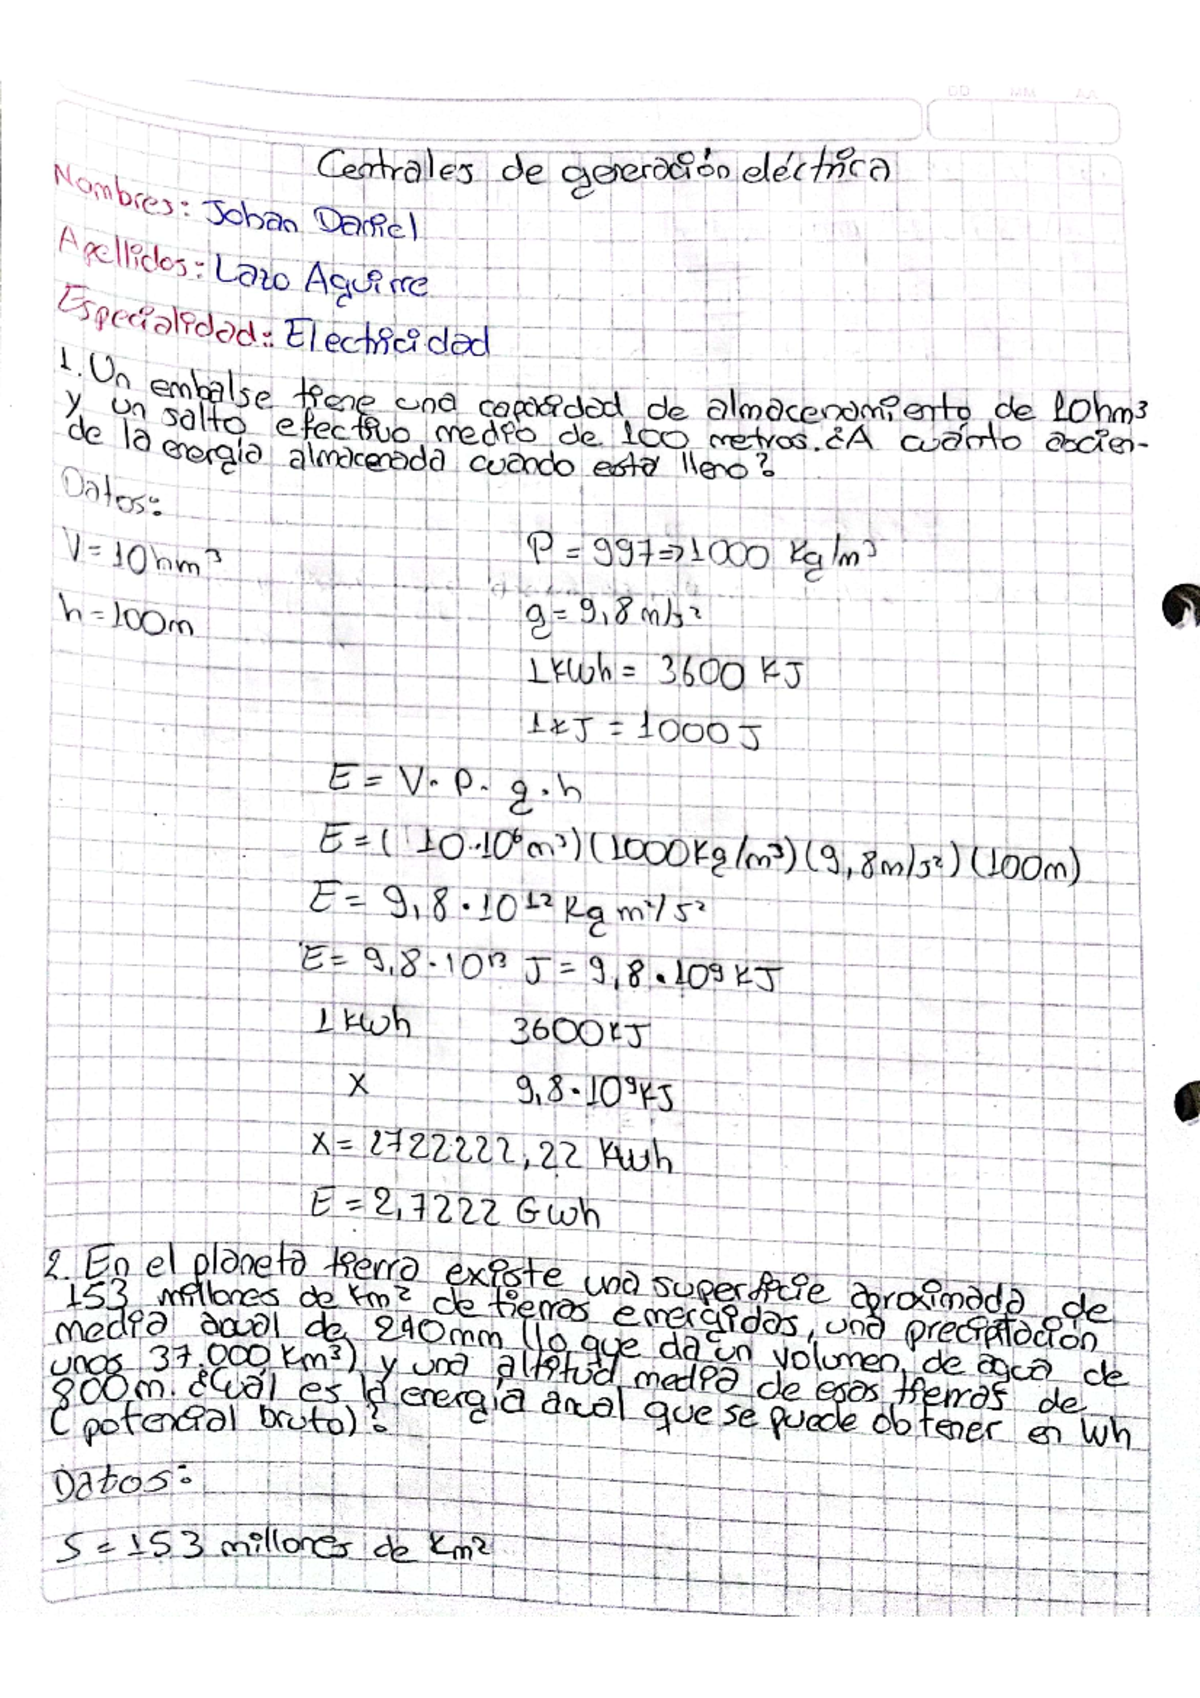 DD MM AA
Centrales de generación eléctrica
Nombres: Johan Daniel
Apellidos: Lazo Aguirre
Especialidad: Electricidad
1. Un embalse tiene una capacidad de almacenamiento de 10hm³
y un salto efectivo medio de 100 metros. ¿A cuánto ascien-
de la energía almacenada cuando está lleno?
Datos:
V = 10hm³
P = 997⇒1000 Kg/m³
h = 100m
g = 9,8 m/s²
1 KWh = 3600 KJ
1 KJ = 1000 J
E = V· P· g·h
E = (10·10⁶m³)(1000Kg/m³)(9,8m/s²)(100m)
E = 9,8·10¹² Kg m²/s²
E = 9,8·10¹³ J = 9,8·10⁹ KJ
1 KWh 3600KJ
X 9,8·10⁹KJ
X = 2722222,22 KWh
E = 2,7222 GWh
2. En el planeta tierra existe una superficie aproximada de
153 millones de Km² de tierras emergidas, una precipitación
media anual de 240mm (lo que da un volumen de agua de
unos 37.000 Km³) y una altitud media de esas tierras de
800m. ¿Cuál es la energía anual que se puede obtener en Wh
(potencial bruto)?
Datos:
S = 153 millones de Km²